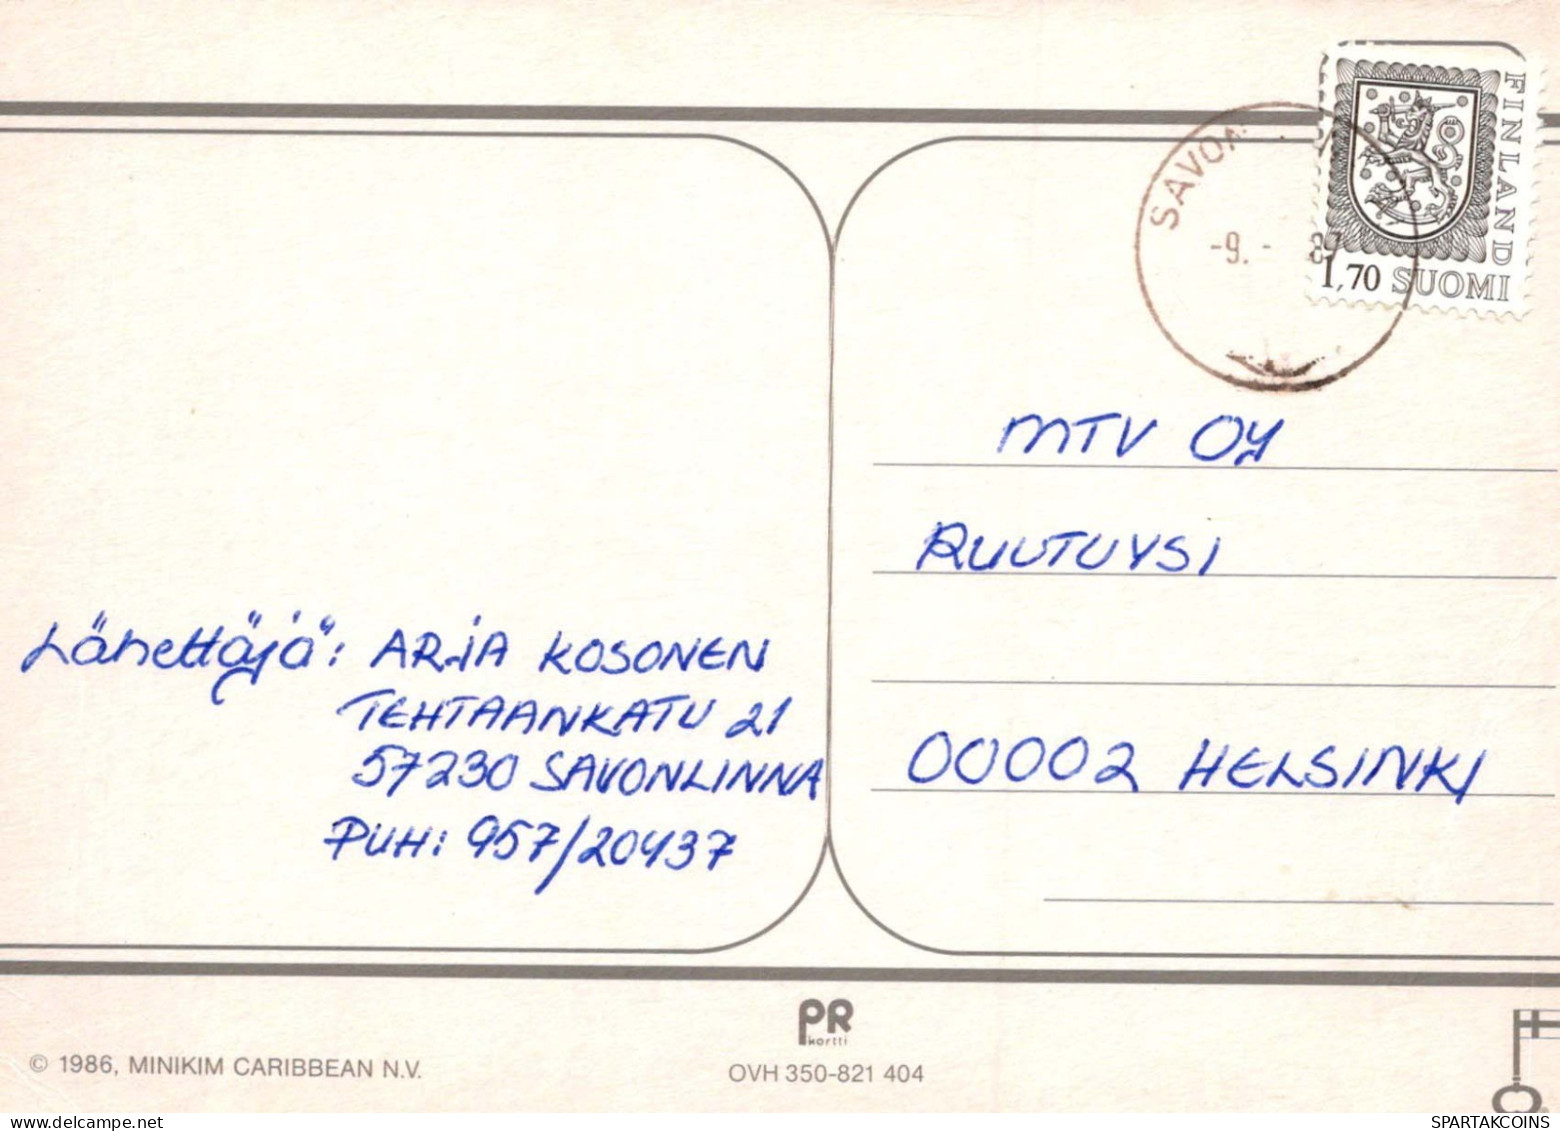 FINLAND
1,70 SUOMI
-9. - 87
MTV OY
RUUTUYSI
Lähettäjä: ARJA KOSONEN
TEHTAANKATU 21
57230 SAVONLINNA
PUH: 957/20437
00002 HELSINKI
PR
kortti
© 1986, MINIKIM CARIBBEAN N.V.
OVH 350-821 404
SPARTAKCOINS